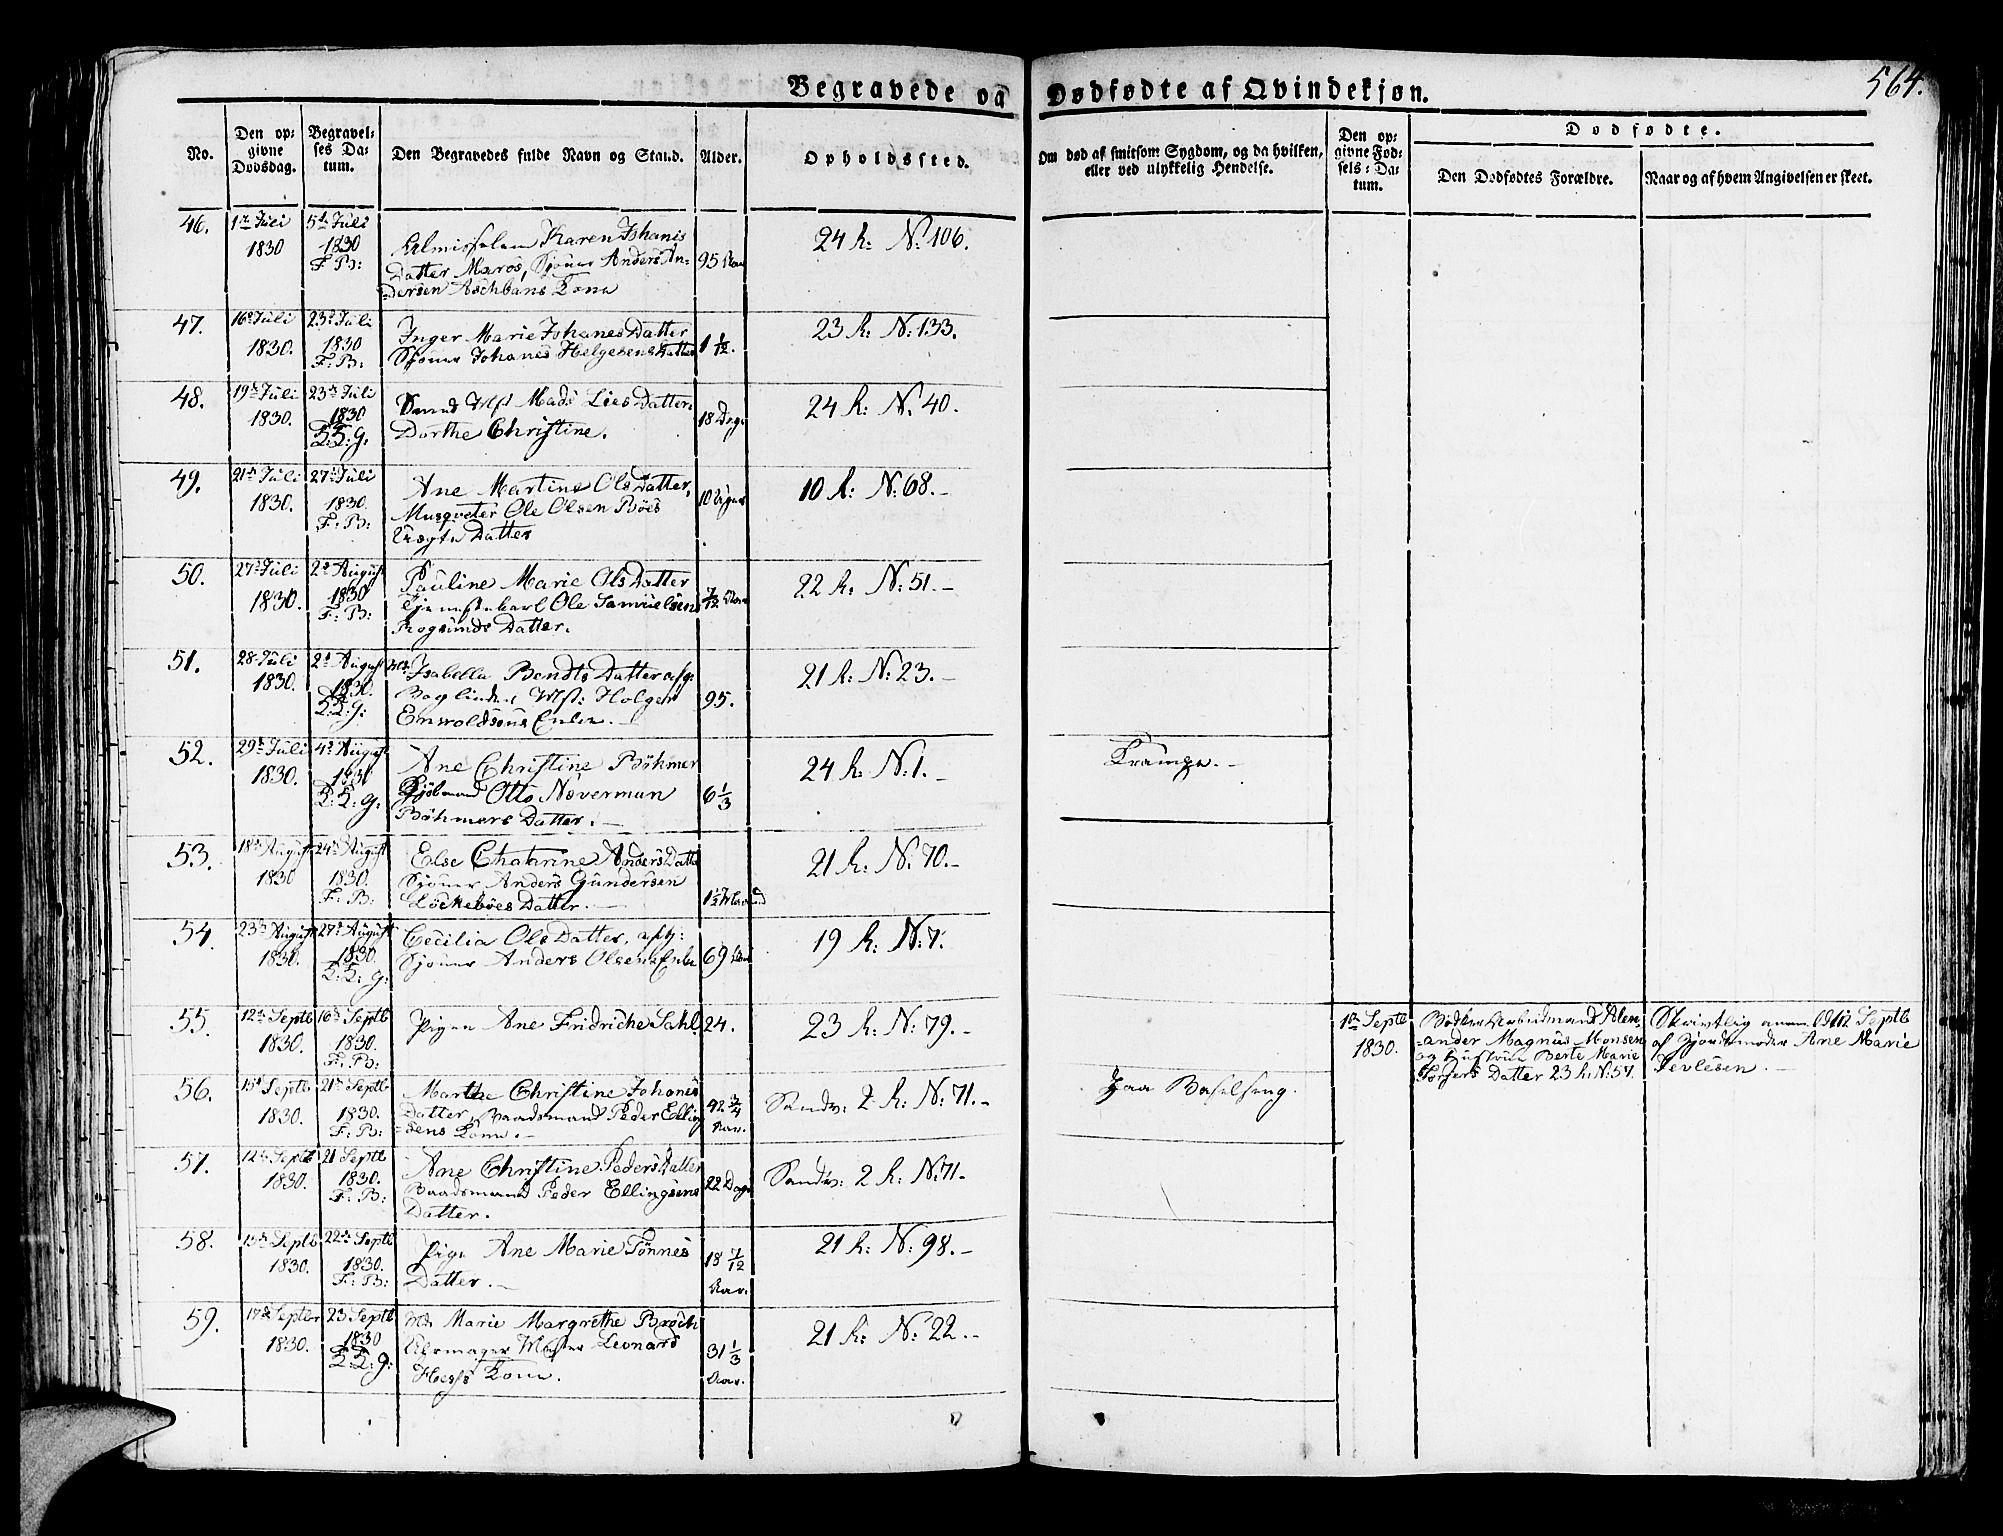 Begravede og Dødfødte af Qvindekjøn.
564.
No.
Den op=
givne
Dødsdag.
Begravel=
ses Da=
tum.
Den Begravedes fulde Navn og Stand.
Alder.
Opholdssted.
Om død af smitsom Sygdom, og da hvilken,
eller ved ulykkelig Hendelse.
Den op=
givne Fød=
sels=Da=
tum.
Dødfødte.
Den Dødfødtes Forældre.
Naar og af hvem Angivelsen er skeet.
46.
1te Juli
1830
5te Juli
1830
F: B:
Karen Johanis
Datter Maros, Sjouer Anders An=
dersen Aschbans Kone
95 Aar
24 R: No: 106.
47.
16de Juli
1830.
23de Juli
1830
F: B:
Inger Marie Johanes Datter
Sjouer Johanes Helgesens Datter
1 1/12.
23 R: N: 133.
48.
19de Juli
1830.
23de Juli
1830
K: K: g.
Mst Mads Lies Datter.
Dorthe Christine.
18 Dage
24 R: No 40.
49.
21de Juli
1830.
27de Juli
1830.
F: B:
Ane Martine Ols Datter,
Musqveter Ole Olsen Böes
Ægte Datter
10 Uger
10 R: No: 68.-
50.
27de Juli
1830.
2de August
1830
F: B:
Pauline Marie Ols Datter
Tjenestekarl Ole Samuelsens
Rogsunds Datter.
7/12 Aar
22 R: No: 51.-
51.
28 Juli
1830.
2de August
1830.
K: K: g:
Md. Isabella Bendts Datter afg:
Bogbinder Mst: Holger
Enwoldsens Enke.-
95.
21 R: No: 23.-
52.
29de Juli
1830.
4de August
1830
K: K: g.
Ane Christine Böhmer
Kjöbmand Otto Noverman
Böhmers Datter.-
6 1/3
24 R: No: 1.-
Krampe.-
53.
18de August
1830
24de August
1830.
F: B:
Else Chatrine Anders Datter
Sjouer Anders Gundersen
Löckeböes Datter.-
1 1/2 Maaned
21 R: No: 70.-
54.
23de August
1830.
27de August
1830.
K: K: g:
Cecilia Ols Datter, afg:
Sjouer Anders Olsens Enke
69 Aar
19 R: No: 7.
55.
12te Septb
1830.
16de Septb
1830.
F: B:
Pigen Ane Fridriche Sahl.
24.
23 R: No: 79.-
1te Septb
1830.
Bödker Arbeidmand Alex=
ander Magnus Monsen
og Hustrue Berte Marie
Torgers Datter 23 R: No: 57.
Skrivtlig anm: 12 Septb
af Gjordemoder Ane Marie
Tevlesen.-
56.
15de Septb
1830.
21de Septb
1830.
F: B:
Marthe Christine Johanis
Datter, Baadsmand Peder Elling=
sens Kone.-
42 3/4
Aar.
Sandv: 2 R: No: 71.-
Paa Barselseng.
57.
12te Septb
1830.
21 Septb
1830.
F: B:
Ane Christine Peders Datter
Baadsmand Peder Ellingsens
Datter.
22 Dage
Sandv: 2 R: No: 71.
58.
15de Septb
1830.
22de Septb
1830.
F: B:
Pige Ane Marie Tönnes
Datter.-
18 7/12
Aar.
21 R: No: 98.-
59.
17de Septbr
1830.
23 Septb
1830
K: K: g:
Md. Marie Margrethe Bröch
Uhrmager Mester Leonard
Hess's Kone.
31 1/3
Aar.
21 R: No: 22.-